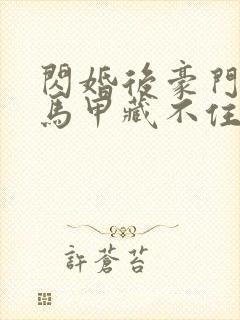 閃婚後豪門
馬甲藏不住
許蒼苔